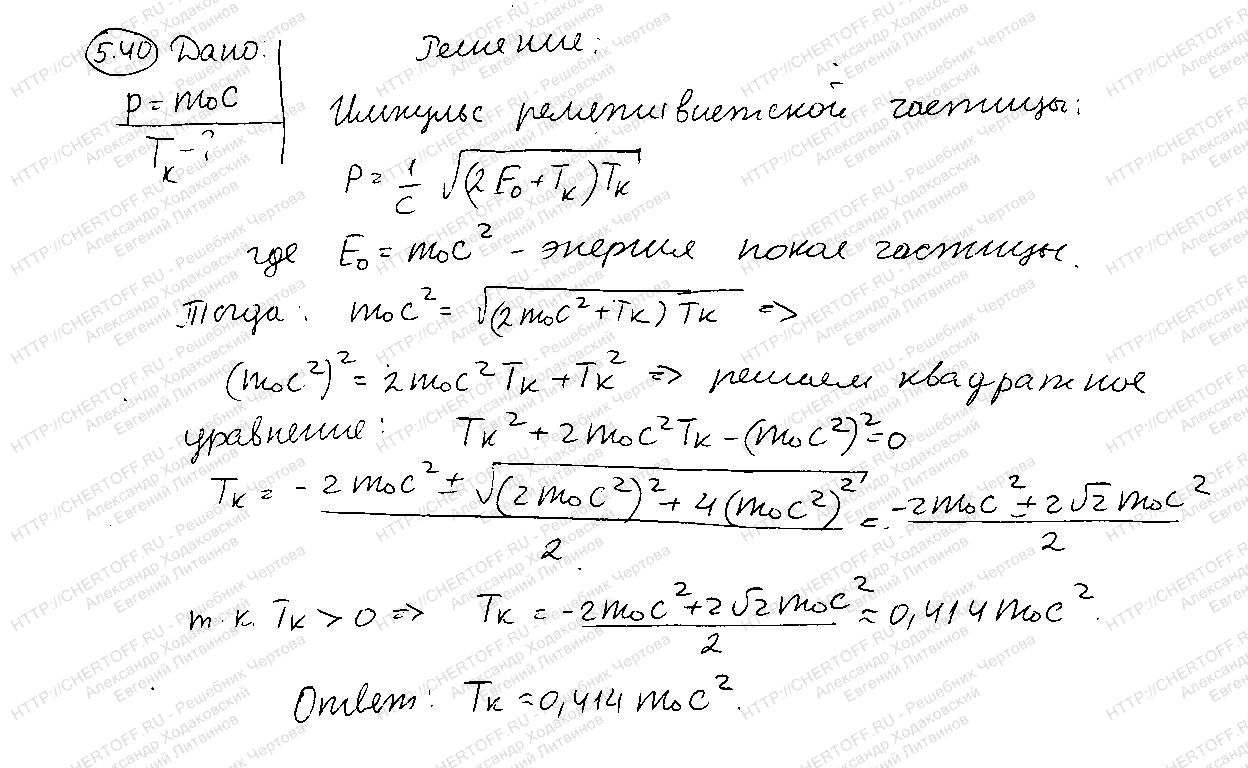 5.40 Дано: Решение:
p = m₀c
Tк - ?
Импульс релятивистской частицы:
P = 1/c √((2E₀ + Tк)Tк)
где E₀ = m₀c² - энергия покоя частицы.
Тогда: m₀c² = √((2m₀c² + Tк) Tк) =>
(m₀c²)² = 2m₀c² Tк + Tк² => решаем квадратное
уравнение: Tк² + 2m₀c²Tк - (m₀c²)² = 0
Tк = (-2m₀c² ± √((2m₀c²)² + 4(m₀c²)²))/2 = (-2m₀c² ± 2√2 m₀c²)/2
т.к. Tк > 0 => Tк = (-2m₀c² + 2√2 m₀c²)/2 ≈ 0,414 m₀c².
Ответ: Tк = 0,414 m₀c².
HTTP://CHERTOFF.RU - Решебник Чертова
Александр Ходаковский
Евгений Литвинов